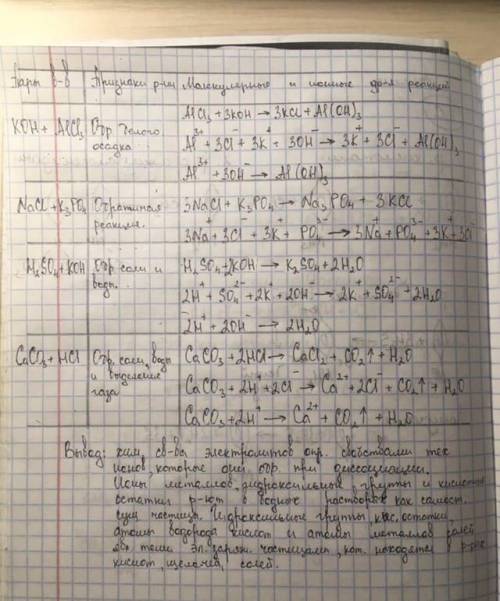 Пары в-в Признаки р-ии Молекулярные и ионные ур-я реакций
KOH + AlCl₃ Обр. белого осадка
AlCl₃ + 3KOH → 3KCl + Al(OH)₃
Al³⁺ + 3Cl⁻ + 3K⁺ + 3OH⁻ → 3K⁺ + 3Cl⁻ + Al(OH)₃
Al³⁺ + 3OH⁻ → Al(OH)₃
NaCl + K₃PO₄ Обратимая реакция.
3NaCl + K₃PO₄ → Na₃PO₄ + 3KCl
3Na⁺ + 3Cl⁻ + 3K⁺ + PO₄³⁻ → 3Na⁺ + PO₄³⁻ + 3K⁺ + 3Cl
H₂SO₄ + KOH Обр. соли и воды
H₂SO₄ + 2KOH → K₂SO₄ + 2H₂O
2H⁺ + SO₄²⁻ + 2K⁺ + 2OH⁻ → 2K⁺ + SO₄²⁻ + 2H₂O
2H⁺ + 2OH⁻ → 2H₂O
CaCO₃ + HCl Обр. соли, воды и выделение газа
CaCO₃ + 2HCl → CaCl₂ + CO₂↑ + H₂O
CaCO₃ + 2H⁺ + 2Cl⁻ → Ca²⁺ + 2Cl⁻ + CO₂↑ + H₂O
CaCO₃ + 2H⁺ → Ca²⁺ + CO₂↑ + H₂O
Вывод: хим. св-ва электролитов опр. свойствами тех
ионов, которые они обр. при диссоциации.
Ионы металлов, гидроксильные группы и кислотные
остатки р-ют в водных растворах как самост.
сущ. частицы. Гидроксильные группы, кис. остатки,
атомы водорода кислот и атомы металлов солей
явл. теми эл. заряж. частицами, кот. находятся в р-рах
кислот, щелочей, солей.